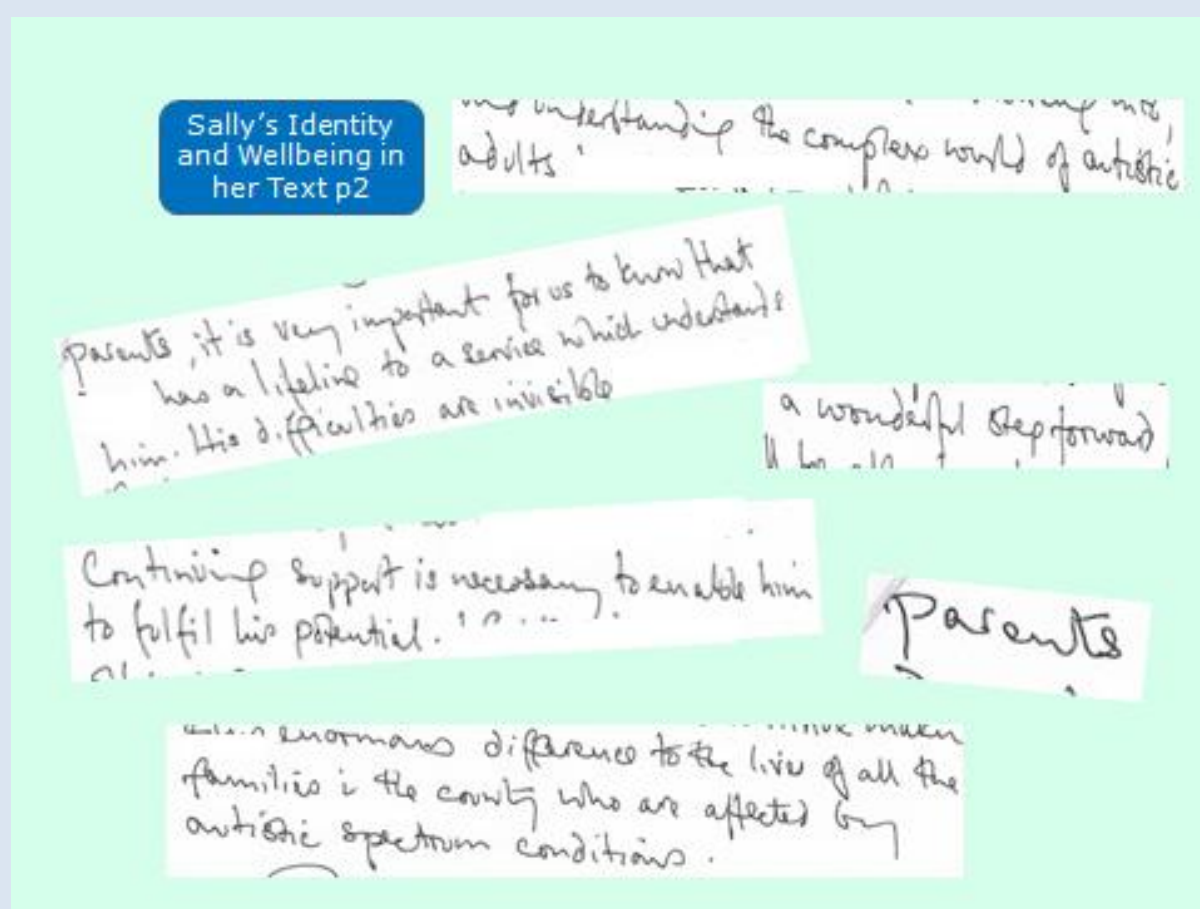 Sally's Identity
and Wellbeing in
her Text p2
understanding the complex world of autistic
adults
parents, it is very important for us to know that
has a lifeline to a service which understands
him. His difficulties are invisible
a wonderful step forward
Continuing support is necessary to enable him
to fulfil his potential.
Parents
enormous difference to the lives of all the
families in the county who are affected by
autistic spectrum conditions.